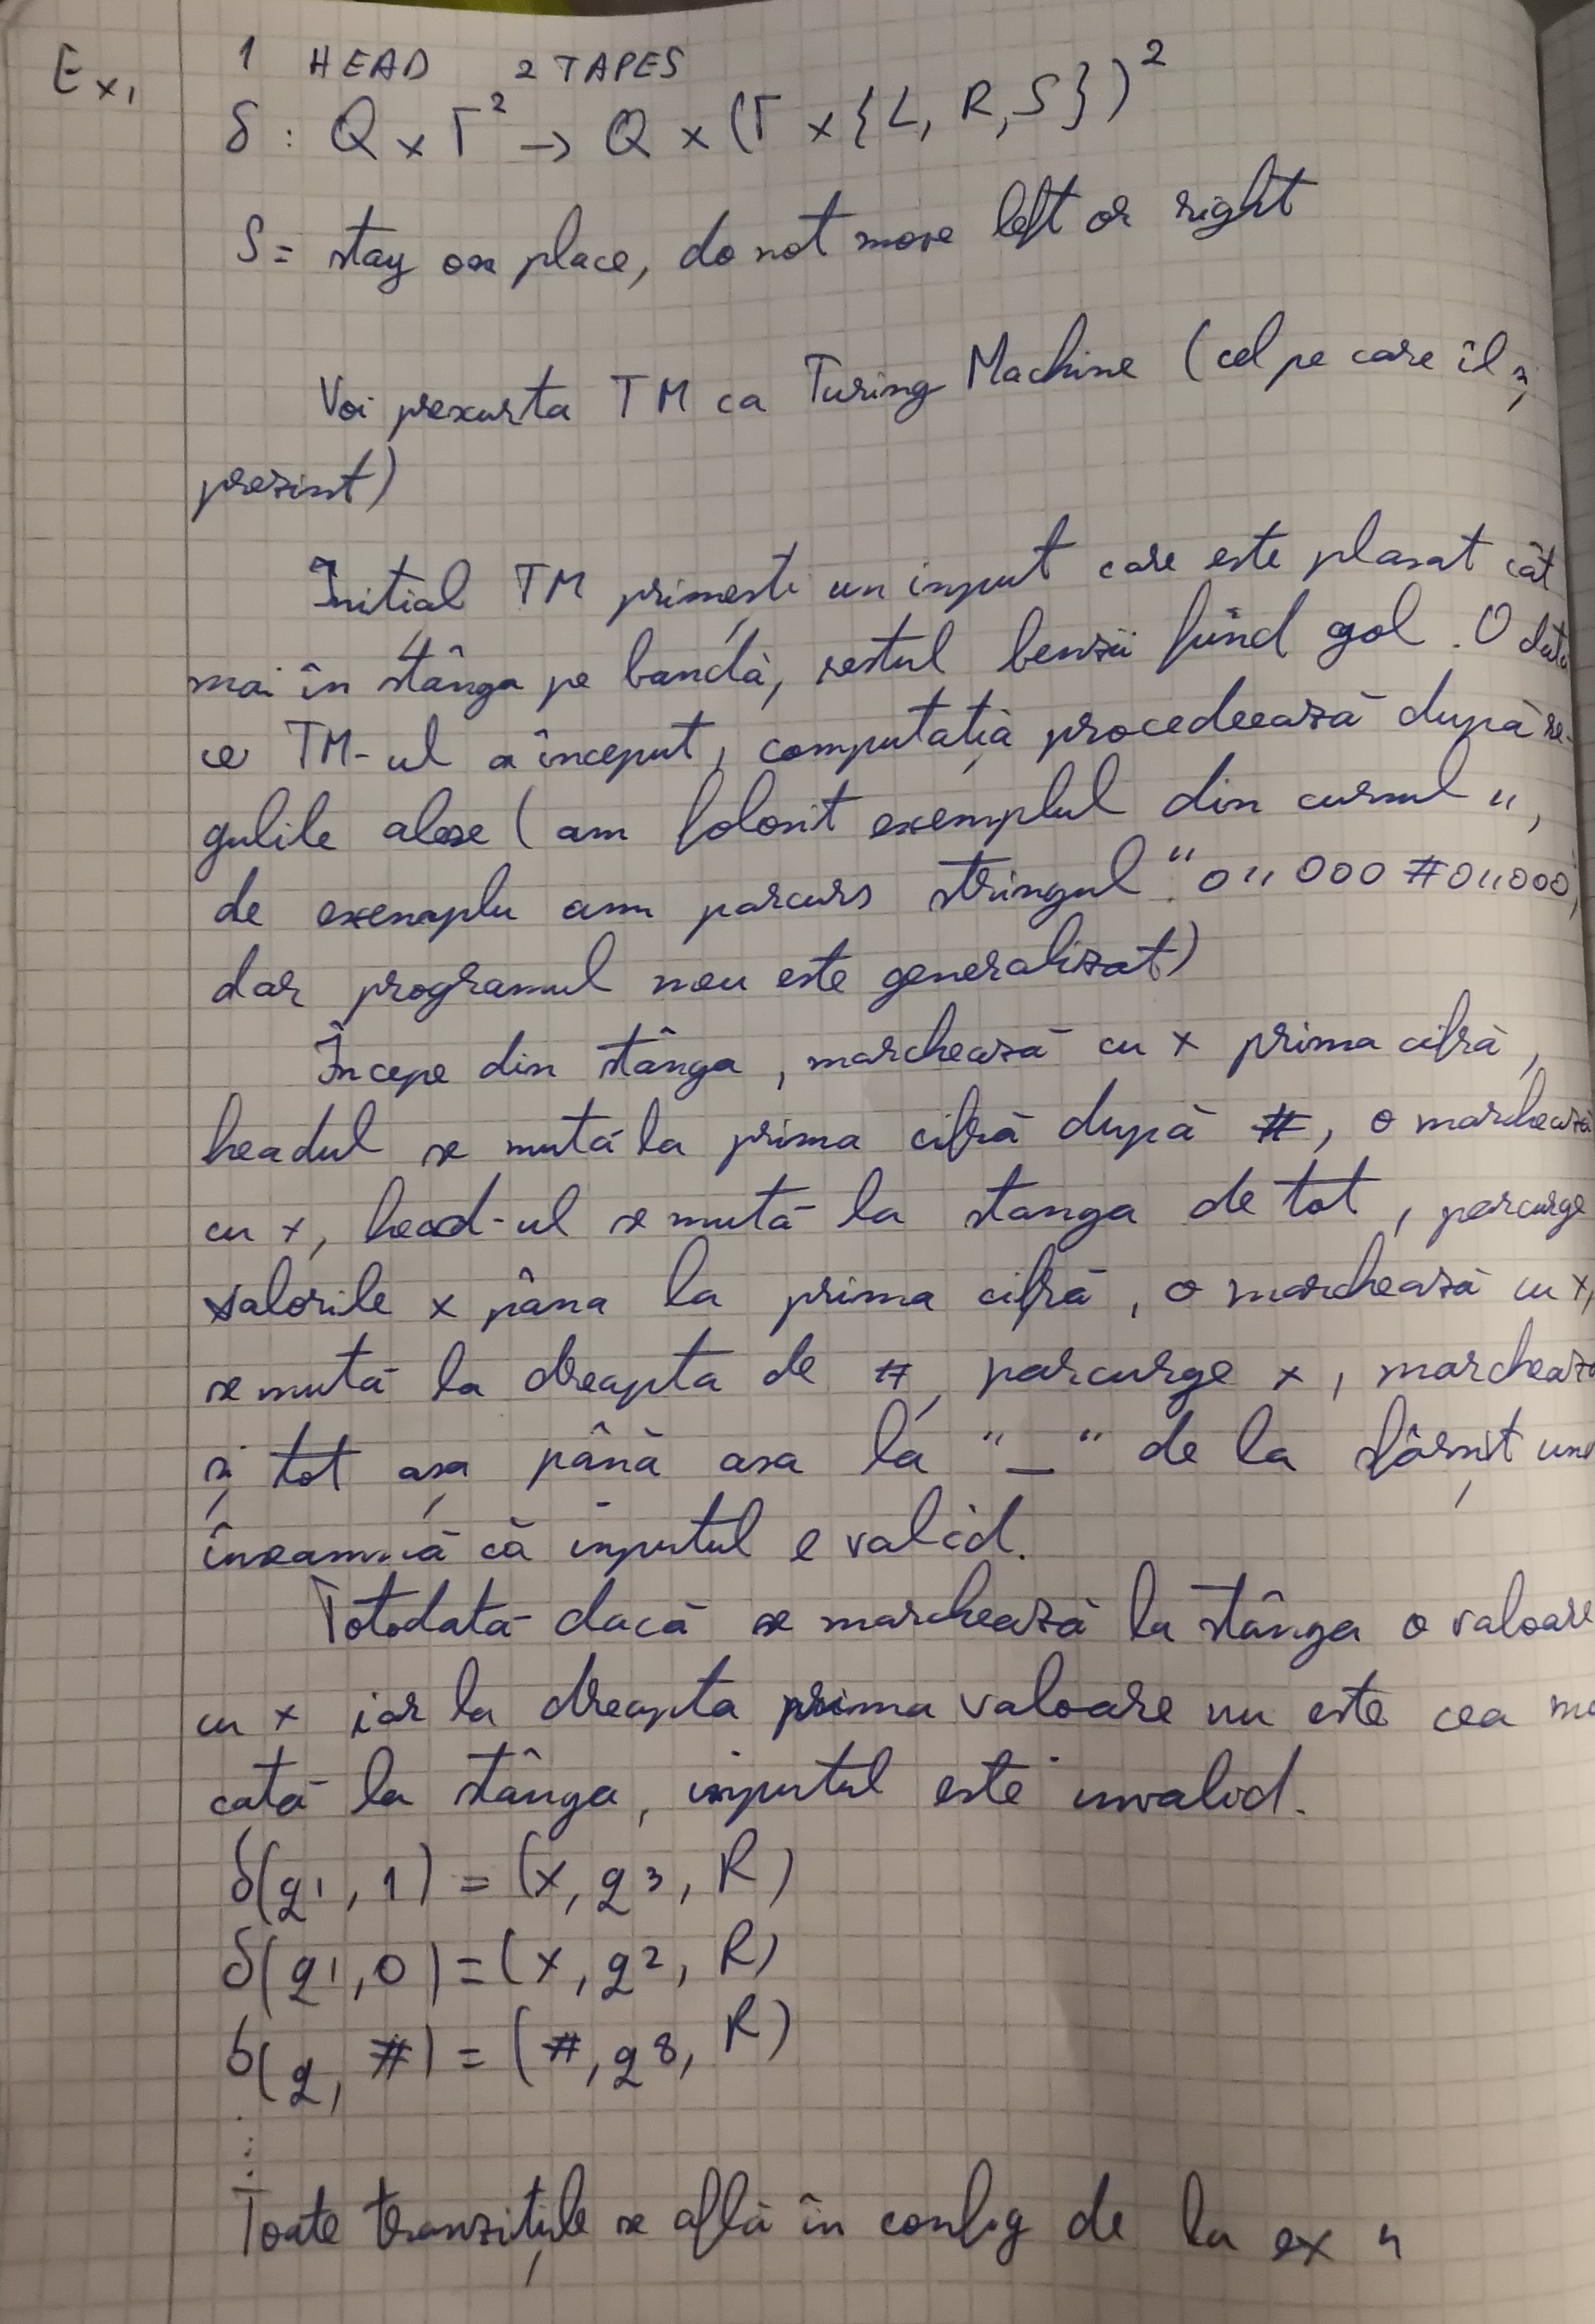 Ex1
1 HEAD 2 TAPES
δ : Q x Γ² → Q x (Γ x {L, R, S})²
S = stay on place, do not move left or right
Voi prezenta TM ca Turing Machine (cel pe care îl
prezint)
Inițial TM primește un input care este plasat cât
mai în stânga pe bandă, restul benzii fiind gol. O dată
ce TM-ul a început, computația procedeează după re-
gulile alese (am folosit exemplul din cursul 11,
de exemplu am parcurs stringul "011000#011000,
dar programul meu este generalizat)
Începe din stânga, marchează cu x prima cifră,
headul se mută la prima cifră după #, o marchează
cu x, head-ul se mută la stanga de tot, parcurge
valorile x pâna la prima cifră, o marchează cu x,
se mută la dreapta de #, parcurge x, marchează
și tot așa până asa la "_" de la sfârșit
înseamnă că inputul e valid.
Totodată dacă se marchează la stânga o valoare
cu x iar la dreapta prima valoare nu este cea
cată la stânga, inputul este invalid.
δ(q1, 1) = (x, q3, R)
δ(q1, 0) = (x, q2, R)
δ(q, #) = (#, q8, R)
⋮
Toate tranzițiile se află în config de la ex 4